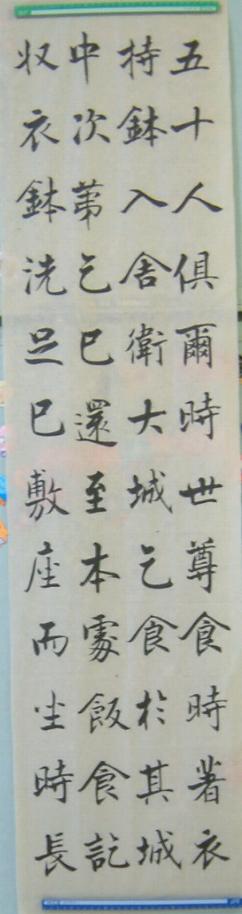 五十人俱爾時世尊食時著衣
持鉢入舍衛大城乞食於其城
中次第乞已還至本處飯食訖
収衣鉢洗足已敷座而坐時長